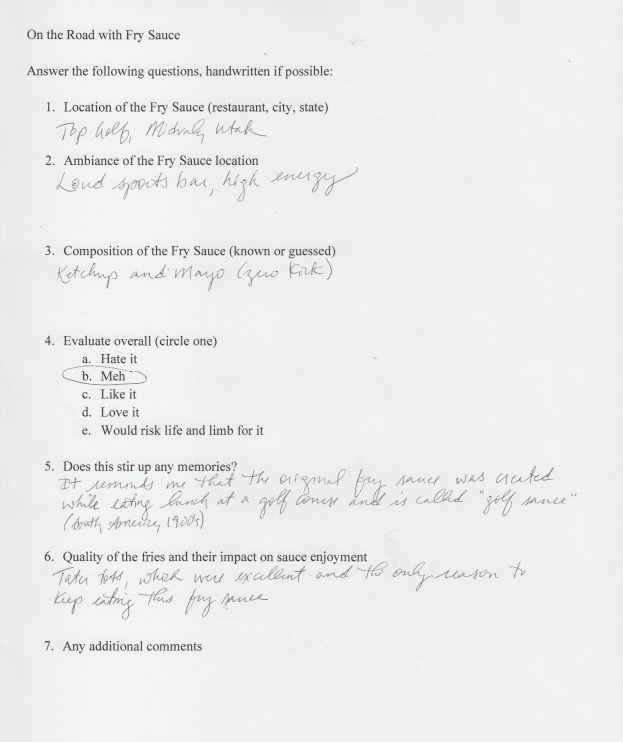 On the Road with Fry Sauce
Answer the following questions, handwritten if possible:
1. Location of the Fry Sauce (restaurant, city, state)
Top Golf, Midvale, Utah
2. Ambiance of the Fry Sauce location
Loud sports bar, high energy
3. Composition of the Fry Sauce (known or guessed)
Ketchup and Mayo (zero kick)
4. Evaluate overall (circle one)
a. Hate it
b. Meh
c. Like it
d. Love it
e. Would risk life and limb for it
5. Does this stir up any memories?
It reminds me that the original fry sauce was created
while eating lunch at a golf course and is called "golf sauce"
(South America, 1900s)
6. Quality of the fries and their impact on sauce enjoyment
Tater tots, which were excellent and the only reason to
keep eating this fry sauce
7. Any additional comments